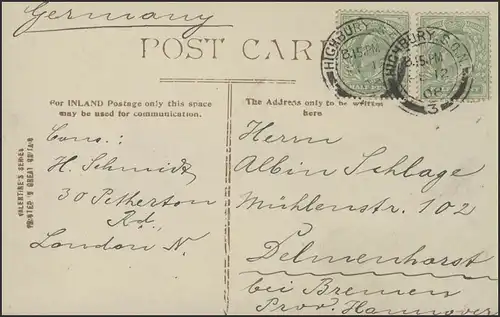 Germany
POST CARD
HIGHBURY
8.15.PM
HIGHBURY. S.O.N.
8.15.PM
12
08
3
For INLAND Postage only this space
may be used for communication.
The Address only to be written
here
VALENTINE'S SERIES
PRINTED IN GREAT BRITAIN
Cons:
H. Schmidt
30 Petherton
Rd.
London N.
Herrn
Albin Schlage
Mühlenstr. 102
Delmenhorst
bei Bremen
Prov. Hannover